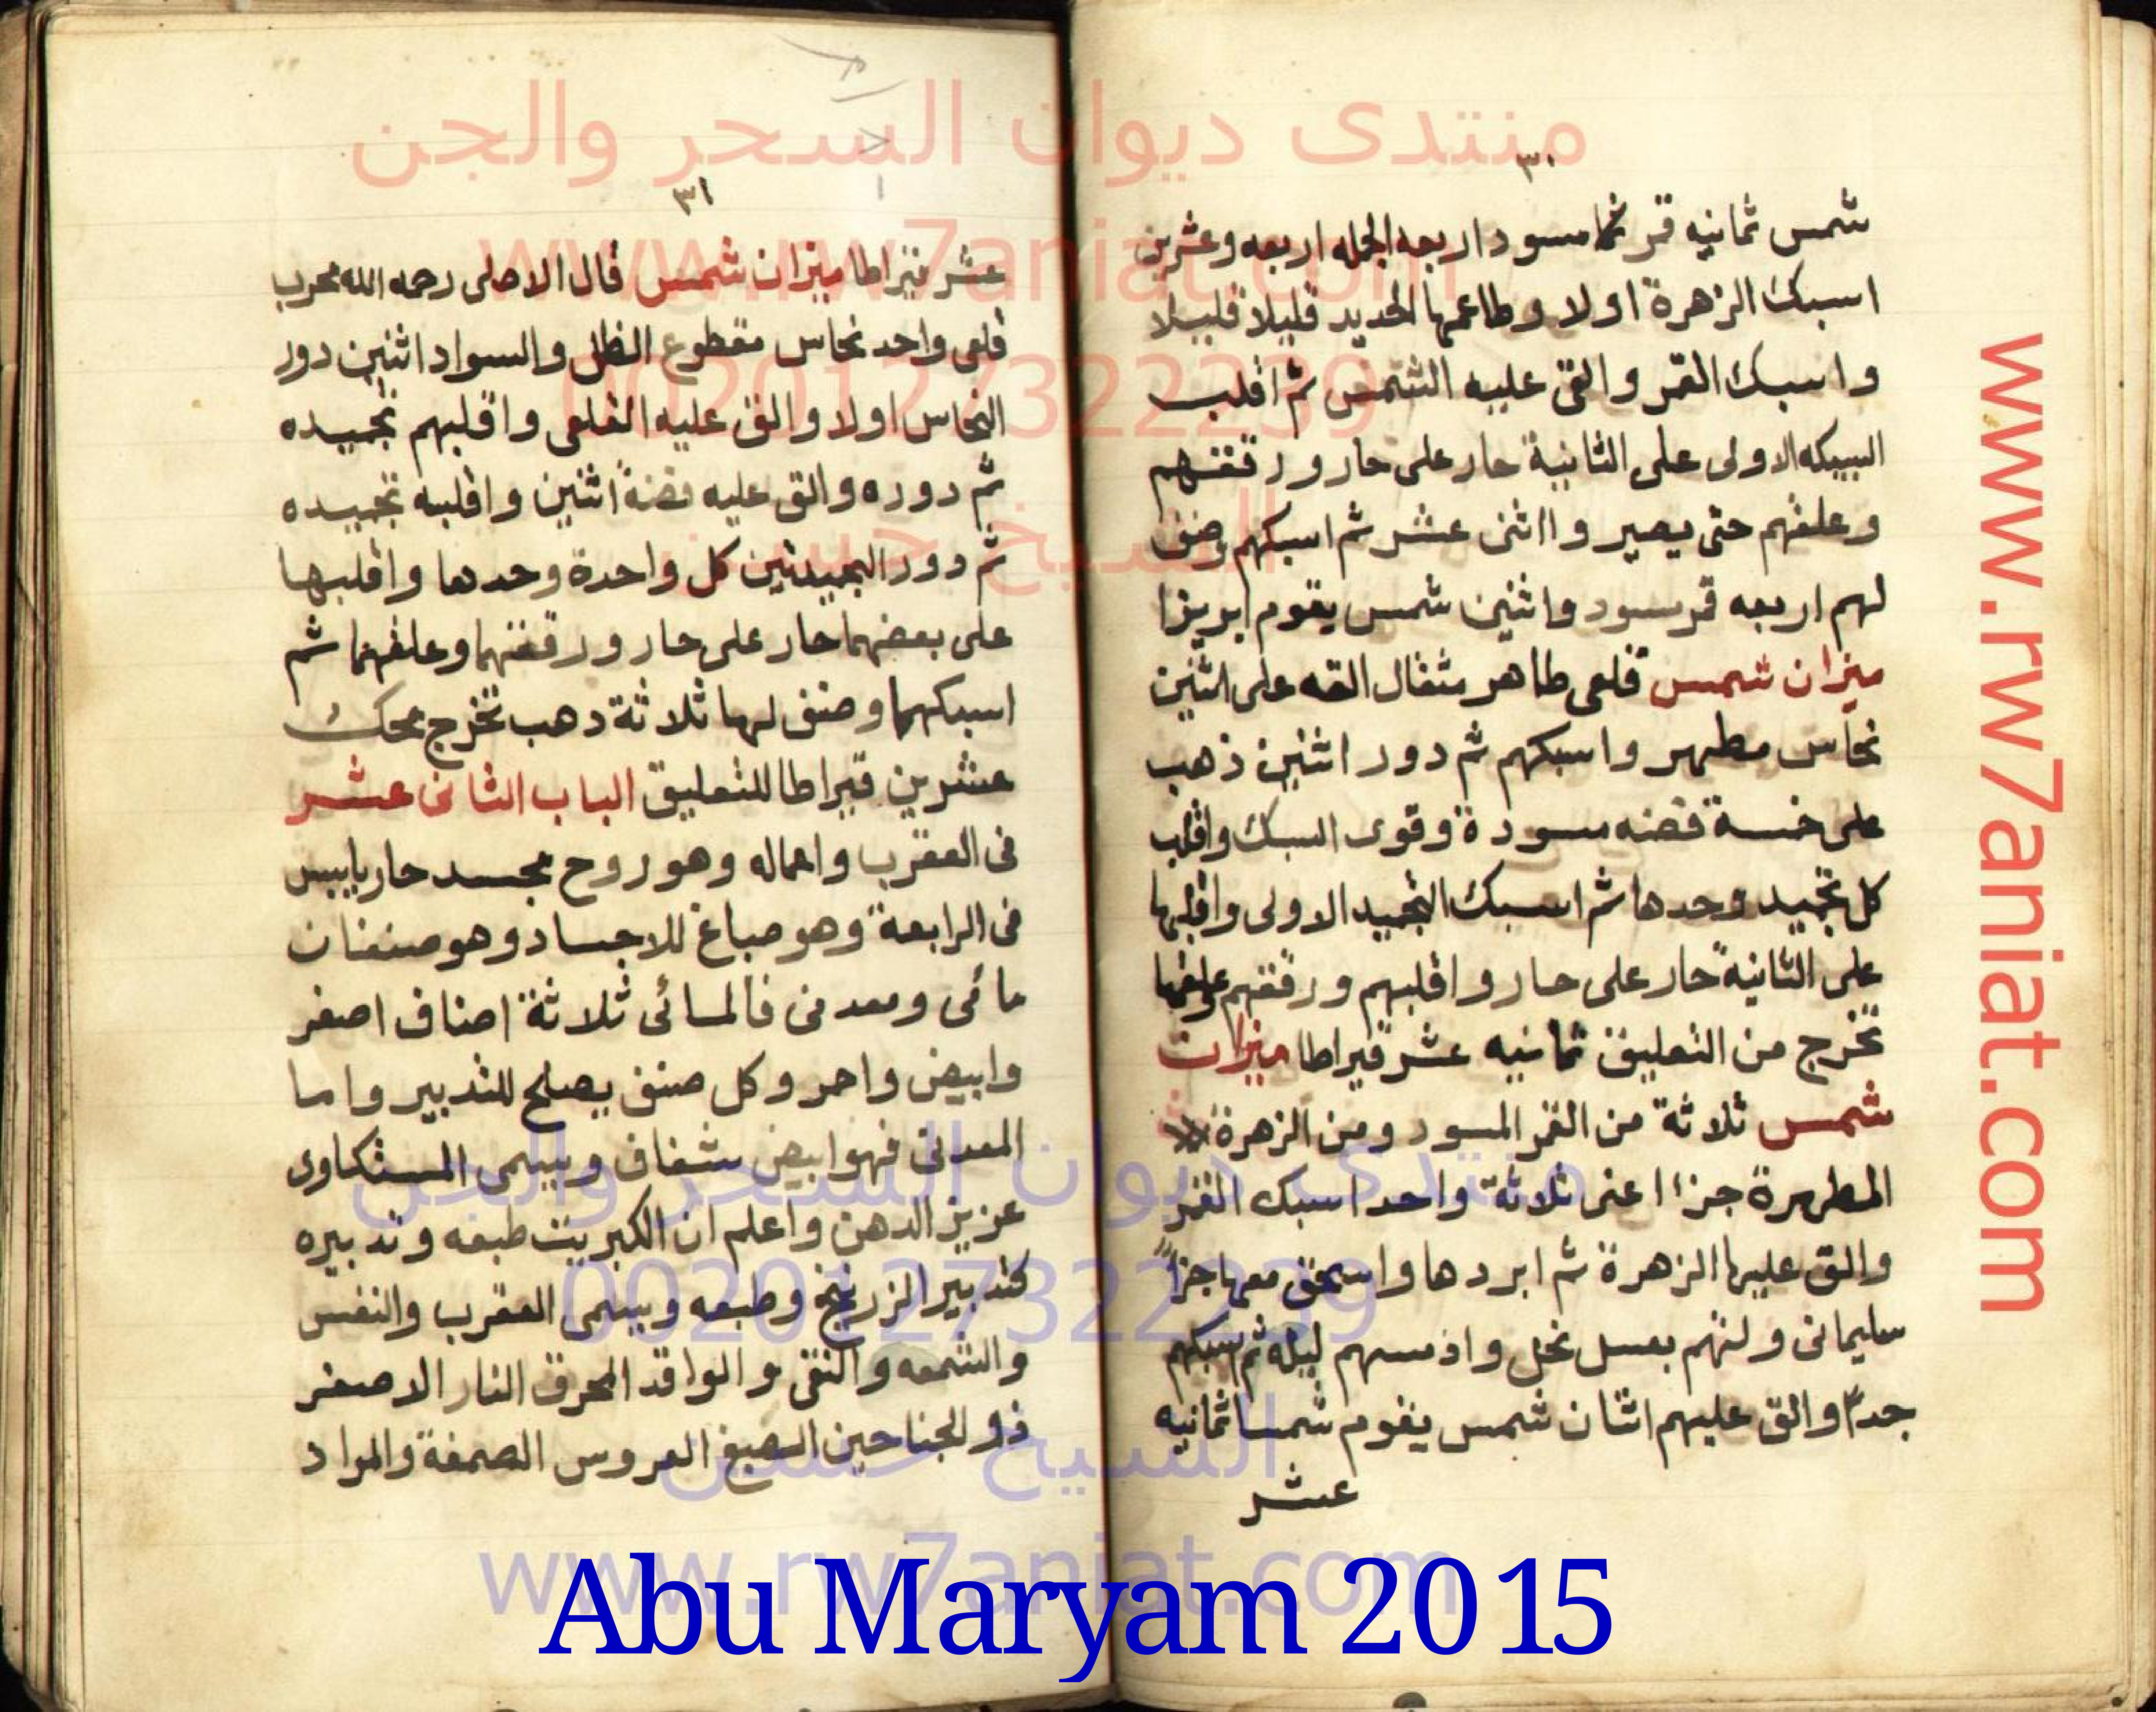 منتدى ديوان السحر والجن
www.rw7aniat.com
0020127322239
الشيخ حسين
٣٠
شمس ثمانيه قمر مسود اربعه الجمله اربعه وعشرين
اسبك الزهرة اولا وطاعمها الحديد قليلا قليلا
واسبك القمر والق عليه الشمس ثم اقلب
السبيكه الاولى على الثانية حار على حار ورققهم
وعلقهم حتى يصير وا اثنى عشر ثم اسبكهم وضف
لهم اربعه قمر مسود واثنين شمس يقوم ابريزا
ميزان شمس قلعى طاهر مثقال القه على اثنين
نحاس مطهر واسبكهم ثم دور اثنين ذهب
على خمسة فضه مسودة وقوى السبك واقلب
كل تجيد وحدها ثم اسبك التجيد الاولى واقلبها
على الثانية حار على حار واقلبهم ورققهم علقها
تخرج من التعليق ثمانيه عشر قيراطا ميزان
شمس ثلاثة من القمر المسود ومن الزهرة
المطهرة جزاا عنى ثلاثة واحد اسبك القمر
والق عليها الزهرة ثم ابردها واسحق معها جزأ
سليمانى ولتهم بعسل نحل وادمسهم ليله ثم اسبكهم
جدا والق عليهم اثنان شمس يقوم شمسا ثمانيه
عشر
٣١
عشر قيراطا ميزان شمس قال الاصلى رحمه الله مجرب
قلعى واحد نحاس مقطوع الظل والسواد اثنين دور
النحاس اولا والق عليه القلعى واقلبهم تجيده
ثم دوره والق عليه فضة اثنين واقلبه تجيده
ثم دور التجيدتين كل واحدة وحدها واقلبها
على بعضهما حار على حار ورققهما وعلقهما ثم
اسبكهما وضف لها ثلاثة دهب تخرج محك
عشرين قيراطا للتعليق الباب الثانى عشر
فى العقرب واعماله وهو روح مجسد حار يابيس
فى الرابعة وهو صباغ للاجساد وهو صنفان
مائى ومعدنى فالمائى ثلاثة اصناف اصفر
وابيض واحمر وكل صنف يصلح للتدبير واما
المعدنى فهو ابيض شفاف ويسمى المستكاوى
عزيز الدهن واعلم ان الكبريت طبعه وتدبيره
كتدبير الزرنيخ وطبعه ويسمى العقرب والنفس
والشمعه والنقى والواقد المحرق النار الاصفر
ذو الجناحين الصبغ العروس الصمغة والمراد
منتدى ديوان السحر والجن
0020127322239
الشيخ حسين
www.rw7aniat.com
Abu Maryam 2015
www.rw7aniat.com